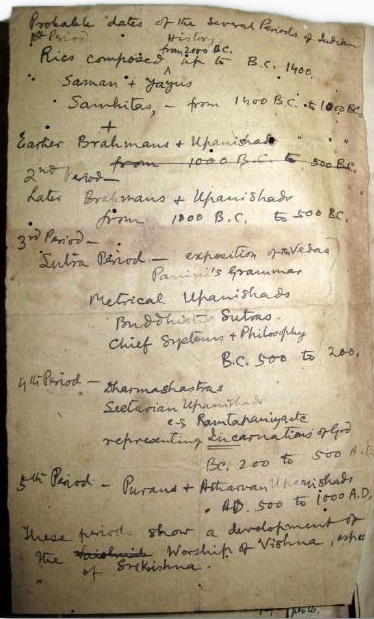 Probable dates of the several Periods of Indian
History
1st Period. from 2000 B.C.
Rics composed up to B.C. 1400.
Saman + Yajus
Samhitas, - from 1400 B.C. to 1000 BC.
+
Earlier Brahmans + Upanishads " "
from 1000 B.C. to 500 BC.
2nd Period -
Later Brahmans + Upanishads
from 1000 B.C. to 500 BC.
3rd Period -
Sutra Period - exposition of the Vedas
Panini's Grammar
Metrical Upanishads
Buddhist Sutras.
Chief Systems + Philosophy
B.C. 500 to 200.
4th Period - Dharmashastras
Sectarian Upanishads
e.g. 
representing Incarnations of God
BC. 200 to 500 A.D.
5th Period - Purans + Atharvan Upanishads
AD. 500 to 1000 A.D.
These periods show a development of
the Worship of Vishnu, espec
of Srikrishna.